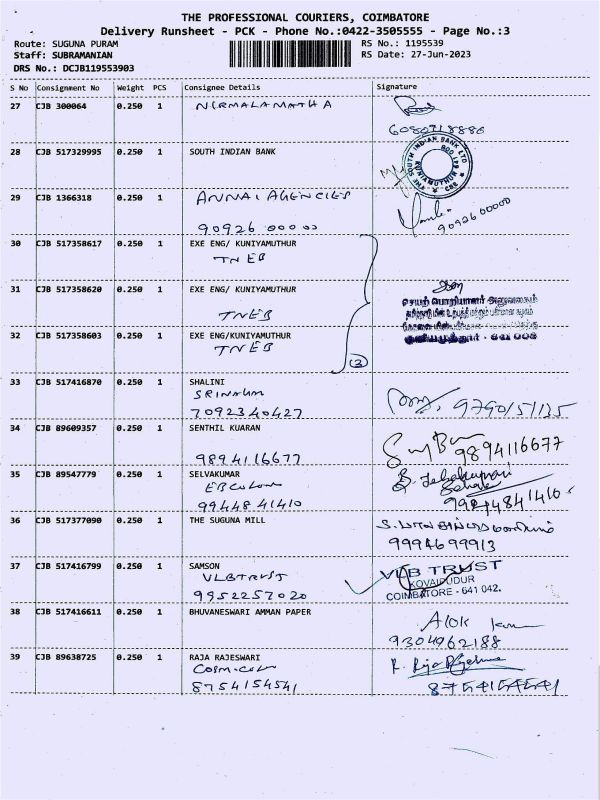 THE PROFESSIONAL COURIERS, COIMBATORE
Delivery Runsheet - PCK - Phone No.:0422-3505555 - Page No.:3
Route: SUGUNA PURAM
RS No.: 1195539
Staff: SUBRAMANIAN
RS Date: 27-Jun-2023
DRS No.: DCJB119553903
S No Consignment No Weight PCS Consignee Details Signature
27 CJB 300064 0.250 1 NIRMALAMATHA
6080718886
28 CJB 517329995 0.250 1 SOUTH INDIAN BANK
THE SOUTH INDIAN BANK LTD
KUNIAMUTHUR
CBE
29 CJB 1366318 0.250 1 ANNAI AGENCIES
90926 00000 9092600000
30 CJB 517358617 0.250 1 EXE ENG/ KUNIYAMUTHUR
TNEB
31 CJB 517358620 0.250 1 EXE ENG/ KUNIYAMUTHUR
செயற் பொறியாளர் அலுவலகம்
TNEB
32 CJB 517358603 0.250 1 EXE ENG/KUNIYAMUTHUR
குனியமுத்தூர் - 641 008
TNEB
(3)
33 CJB 517416870 0.250 1 SHALINI
7092340427 9790151135
34 CJB 89609357 0.250 1 SENTHIL KUARAN
9894116677 9894116677
35 CJB 89547779 0.250 1 SELVAKUMAR
EB Colony
9944841410 9944841410
36 CJB 517377090 0.250 1 THE SUGUNA MILL
9994699913
37 CJB 517416799 0.250 1 SAMSON
VLB TRUST VLB TRUST
KOVAIPUDUR
9952257020 COIMBATORE - 641 042.
38 CJB 517416611 0.250 1 BHUVANESWARI AMMAN PAPER
Alok
9304962188
39 CJB 89638725 0.250 1 RAJA RAJESWARI
8754154541 8754154541